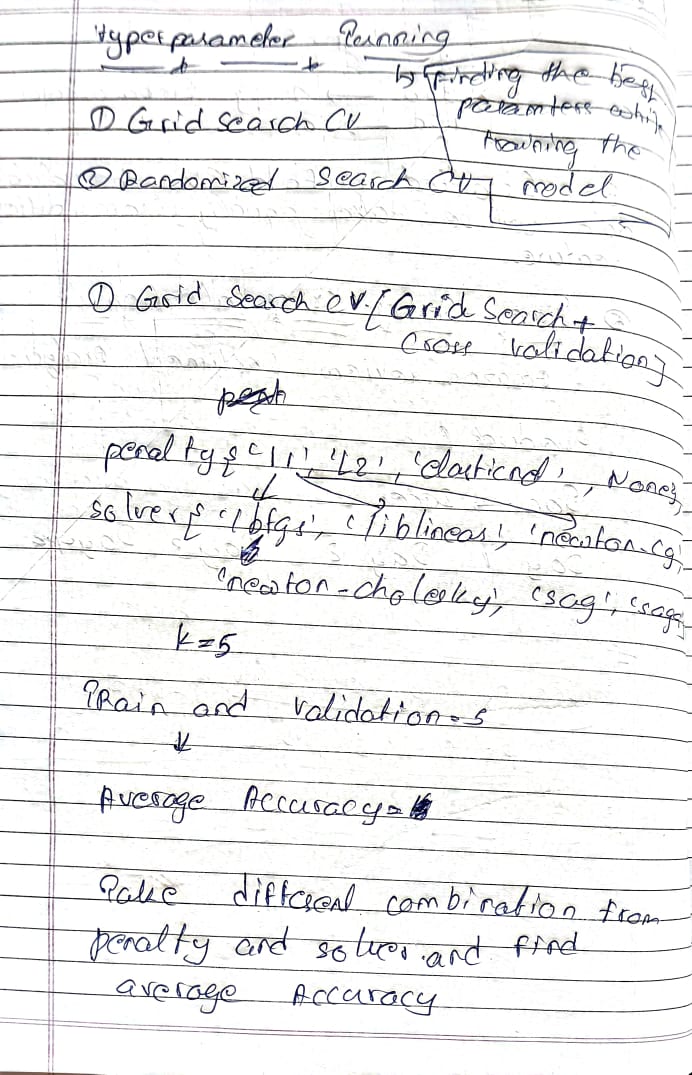 Hyperparameter Tunning
↳ Finding the best
parameters while
trawning the
model
① Grid Search CV
② Randomized Search CV
① Grid Search CV [Grid Search +
Cross validation]
penalty {'l1', 'L2', 'elasticnet', None},
solver {'lbfgs', 'liblinear', 'newton-cg',
'newton-cholesky', 'sag', 'saga'
k=5
Train and validation = 5
↓
Average Accuracy =
Take different combination from
penalty and solver and find
average Accuracy